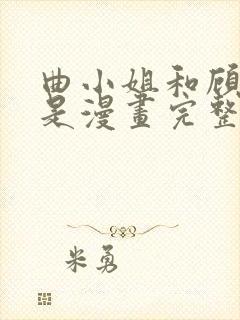 曲小姐和顾
是漫畫完整
米勇